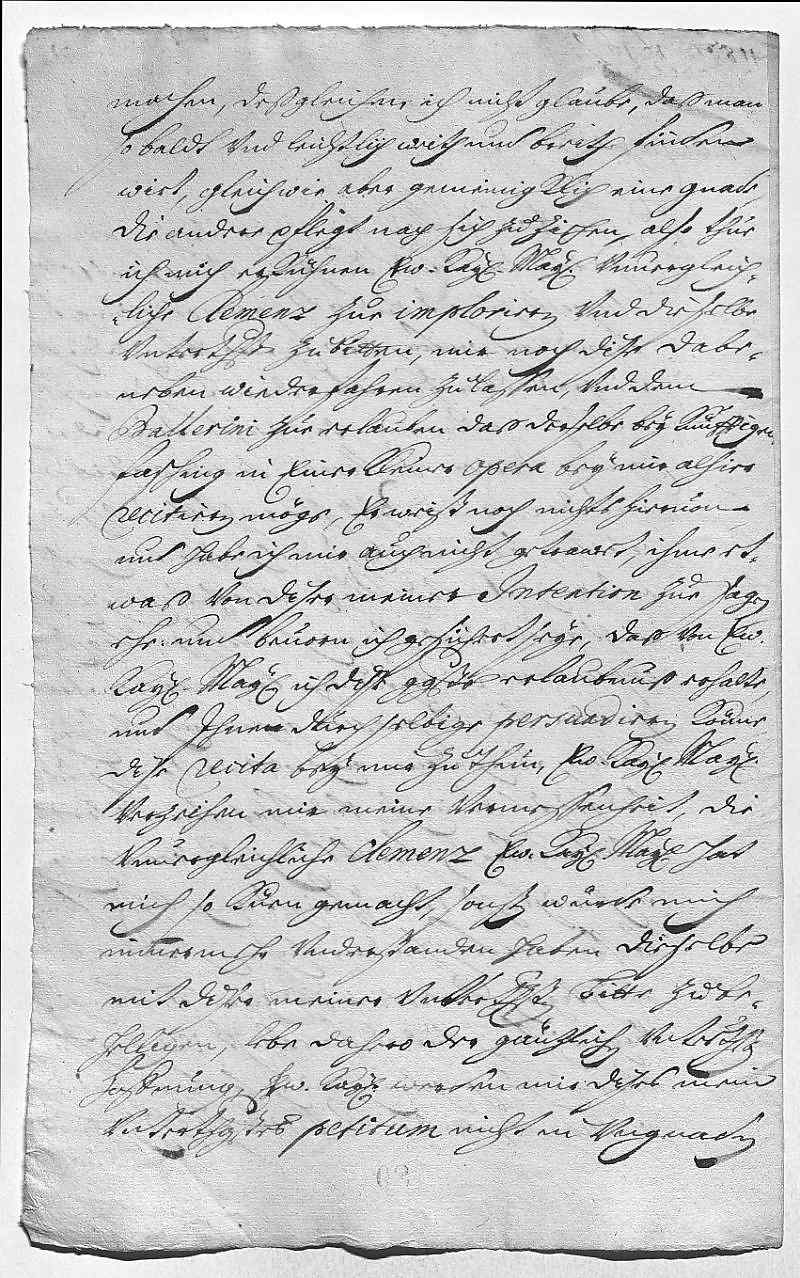 machen, deßgleichen ich nicht glaube, daß man
so baldt Vnd leichtlich weith und breith finden
wirt, gleichwie aber gemeiniglich eine gnade
die andere pflegt nach sich zu ziehen, also thue
ich mich erkühnen Ew. Kayl. Mayl. Vnuergleich-
liche Clemenz zue imploriren Vnd dieselbe
Vnterthst zu bitten, mir noch dise dabe-
neben wiederfahren zu lassen, Vnd dem
Ballerini zue erlauben daß derselbe bey künfftigen
fasching in Einer kleinen opera bey mir alhier
recitiren möge, Er weiß noch nichts hieruon
und habe ich mir auch nicht getrauet, ihme et-
waß Von diser meiner Intention zue sagen
ehe und beuorn ich gesichert seye, daß Von Ew.
Kayl. Mayl. ich dise ggste erlaubnuß erhalte
und Ihnen durch selbige persuadiren könne
dise recita bey mir zu thun, Ew. Kayl. Mayl.
Verzeihen mir meine Vermessenheit, die
Vnuergleichliche Clemenz Ew. Kayl. Mayl. hat
mich so küen gemacht, sonst würde mich
nimmermehr Vnderstanden haben dieselbe
mit diser meiner Vnterthst bitte zu be-
helligen, lebe dahero der gäntzlichen Vnterthst
hoffnung, Ew. Kayl. werden mir dises mein
Vnterthgstes petitum nicht in Vngnaden